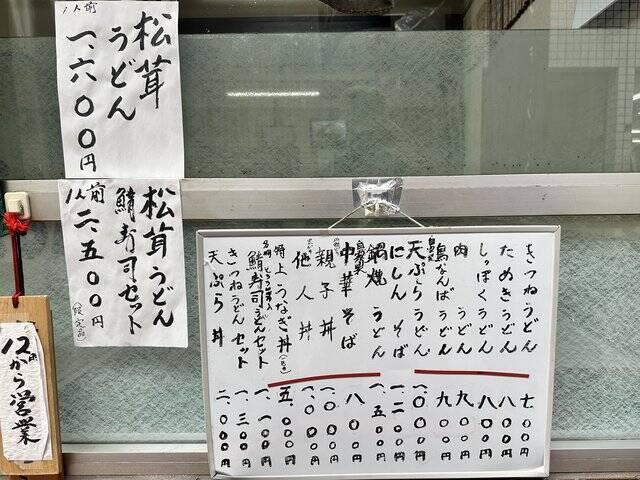 松茸
うどん
1人前
一、六〇〇円
松茸うどん
鯖寿司セット
1人前 二、五〇〇円
(限定品)
12時から営業
きつねうどん 七〇〇円
たぬきうどん 八〇〇円
しっぽくうどん 八〇〇円
肉うどん 九〇〇円
鳥なんばうどん 九〇〇円
天ぷらうどん 一、〇〇〇円
にしんそば 一、二〇〇円
鍋焼うどん 一、五〇〇円
中華そば 八〇〇円
親子丼 一、〇〇〇円
他人丼 一、〇〇〇円
特上うなぎ丼 五、〇〇〇円
鯖寿司うどんセット 一、一〇〇円
きつねうどんセット 一、三〇〇円
天ぷら丼 二、〇〇〇円